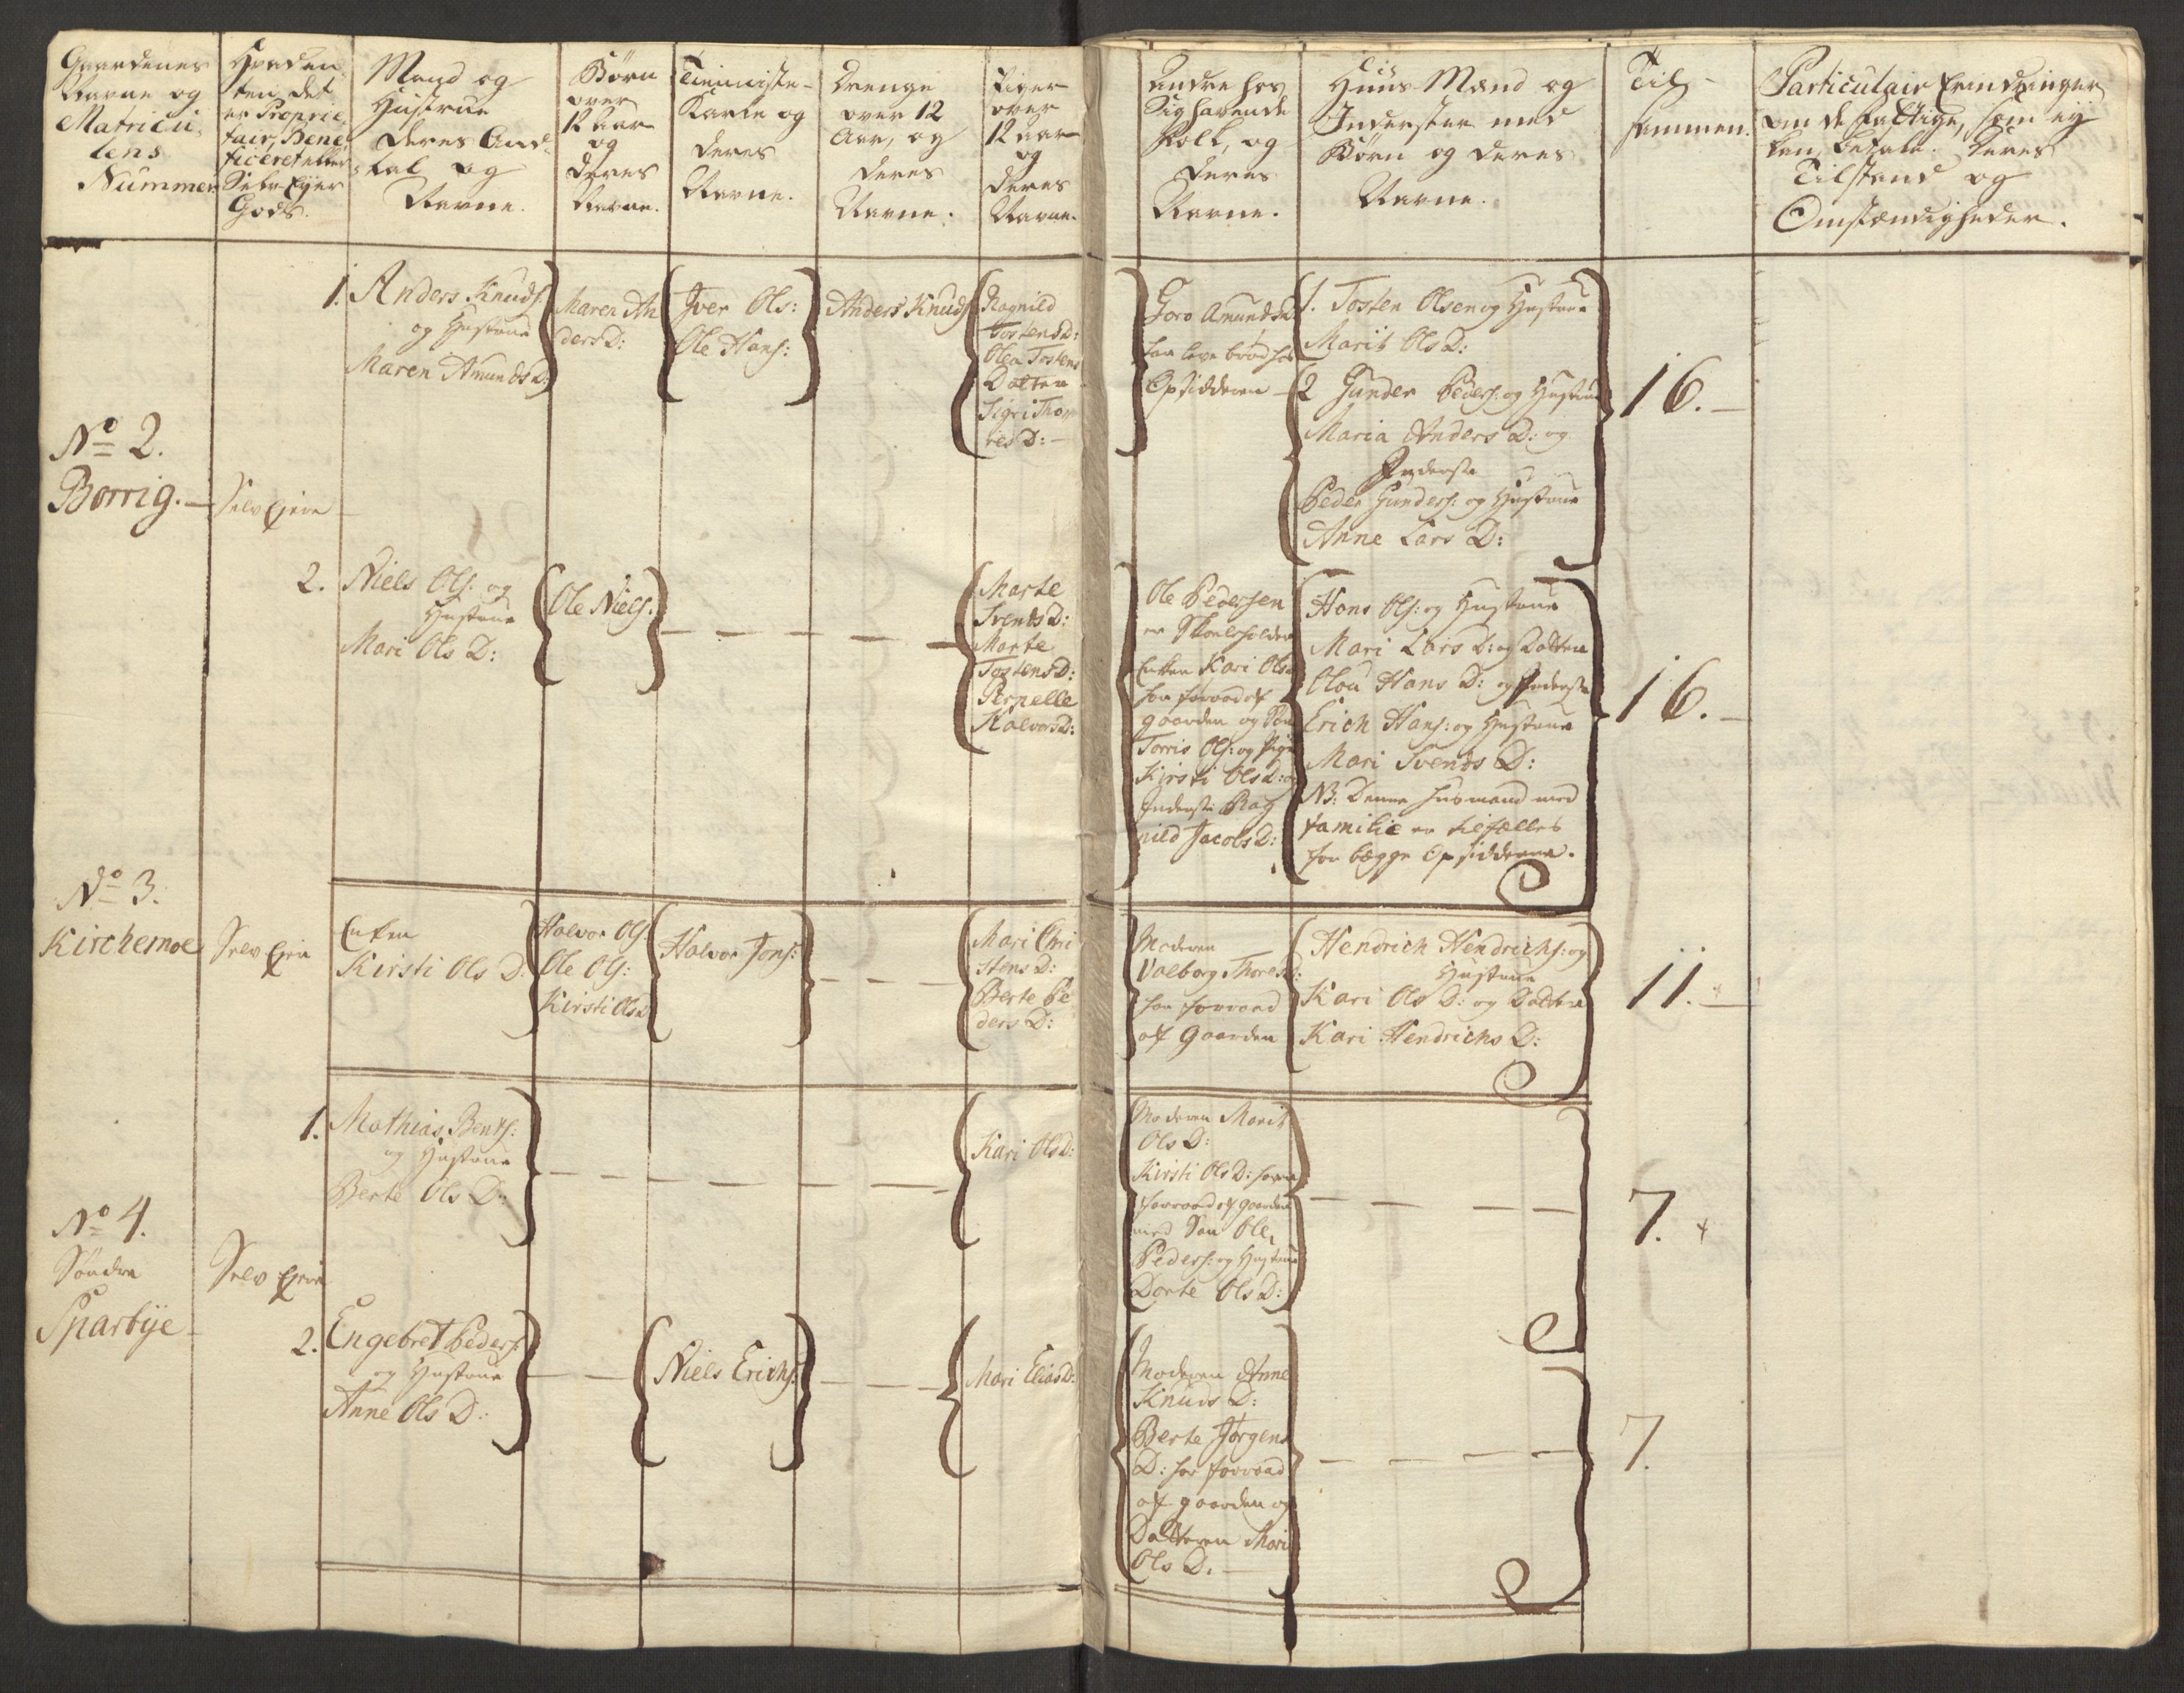 Gaardenes
Nafne og
Matricu-
lens
Nummer
Hvorden
ten det
er Proprie
tair, Bene
ficeret eller
Selv Ejer
Gods.
Mand og
Hustrue
deres And-
tal og
Nafne.
Børn
over
12 Aar
og
deres
Nafne.
Tienniste-
Karle og
deres
Nafne.
Drenge
over 12
Aar, og
deres
Nafne.
Piger
over
12 Aar
og
deres
Nafne.
Andre hos
Sig havende
Folk, og
deres
Nafne.
Huus Mænd og
Inderster med
Børn og deres
Nafne.
Til-
sammen.
Particulair Erindringer
om de fattige, som ey
kan betale. deres
Tilstand og
Omstændigheder.
No 2.
Borrig.
Selv Ejere
1. Anders Knuds:
og Hustrue
Maren Amunds D:
Maren An
ders D:
Iver Ols:
Ole Hans:
Anders Knuds:
Ragnild
Tostens D:
Olea Tostens
Datter
Sigri Thor
res D:
Goro Amunds D:
har leve brød hos
Opsidderen
1. Tosten Olsen og Hustrue
Marit Ols D:
2 Gunder Peders: og Hustrue
Maria Anders D: og
Inderste
Peder Gunders: og Hustrue
Anne Lars D:
16.
2. Niels Ols: og
Hustrue
Mari Ols D:
Ole Niels:
Marte
Svends D:
Marte
Tostens D:
Pernelle
Halvors D:
Ole Pedersen
er Skoeleholder
Enken Kari Ols D:
har forraad af
gaarden og Søn
Torris Ols: og Pige
Kirsti Ols D: og
Inderste Rag
nild Jacobs D:
Hans Ols: og Hustrue
Mari Lars D: og Datter
Olou Hans D: og Inderste
Erich Hans: og Hustrue
Mari Svends D:
NB: Denne husmand med
familie er tilfælles
for begge Opsidderne.
16.
No 3.
Kirchemoe
Selv Ejer
Enken
Kirsti Ols D:
Halvor Ols:
Ole Ols:
Kirsti Ols D
Halvor Jons:
Mari Chri
stens D:
Berte Pe
ders D:
Moderen
Valborg Thores D:
har forraad
af gaarden
Hendrich Hendrichs: og
Hustrue
Kari Ols D: og Datter
Kari Hendrichs D:
11.
No 4.
Søndre
Sparbye
Selv Ejere
1. Mathias Bents:
og Hustrue
Berte Ols D:
Kari Ols D:
Moderen Marit
Ols D:
Kirsti Ols D: have
forraad af gaarden
med Søn Ole
Peders: og Hustrue
Dorte Ols D:
7.
2. Engebret Peders:
og Hustrue
Anne Ols D:
Niels Erichs:
Mari Elias D:
Moderen Anne
Knuds D:
Berte Jørgens
D: har forraad
af gaarden og
Datteren Mari
Ols D.
7.